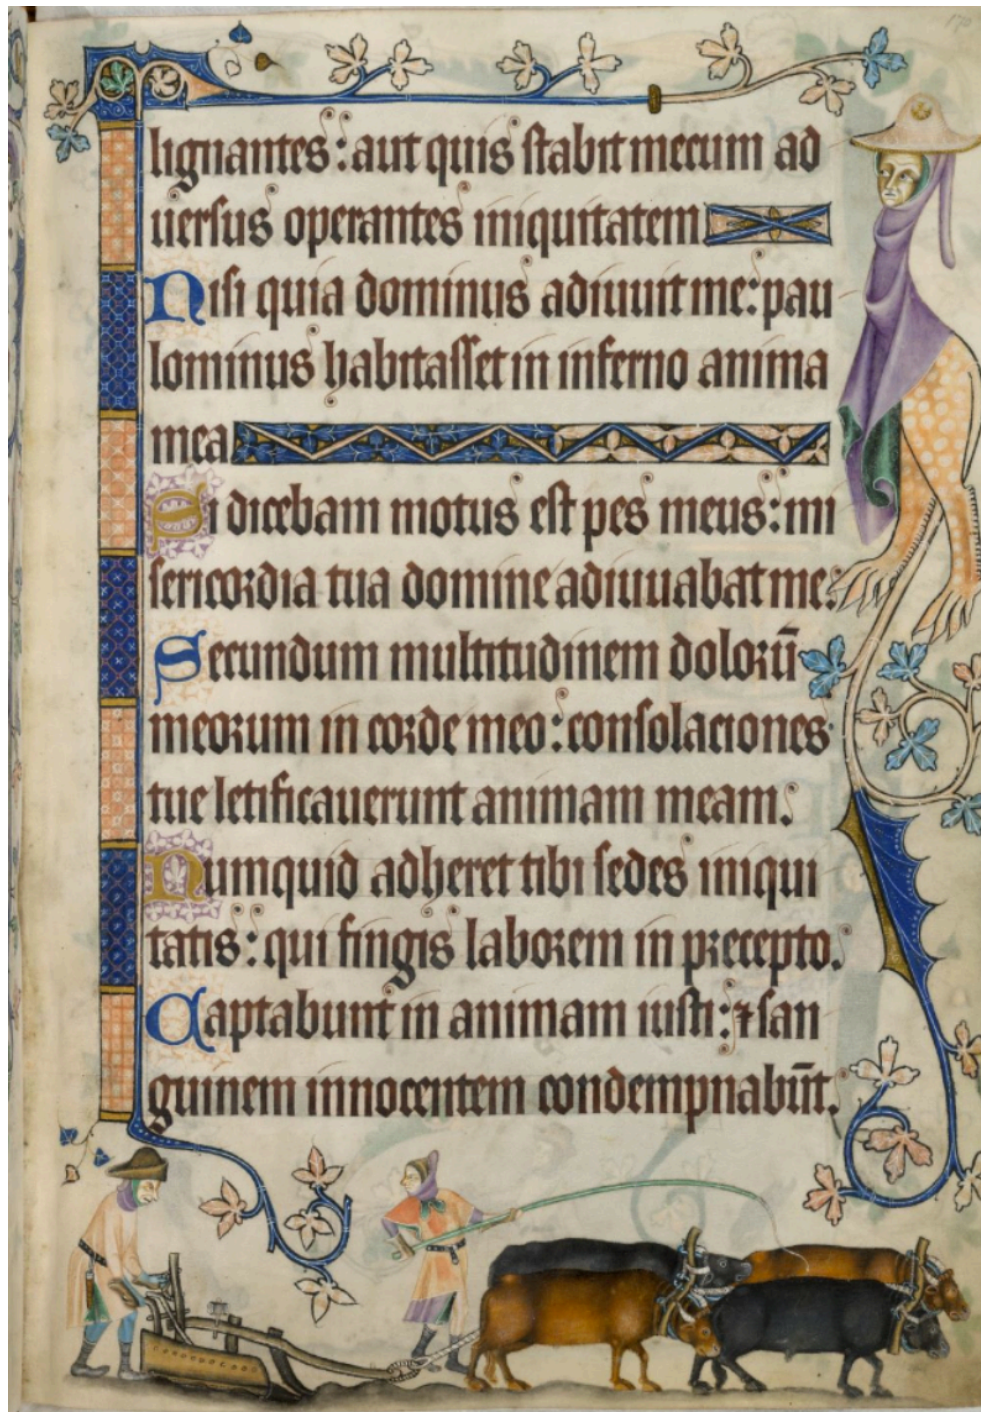 170
lignantes: aut quis stabit mecum ad
uersus operantes iniquitatem
Nisi quia dominus adiuuit me: pau
lominus habitasset in inferno anima
mea
Si dicebam motus est pes meus: mi
sericordia tua domine adiuuabat me:
Secundum multitudinem dolorū
meorum in corde meo: consolaciones
tue letificauerunt animam meam.
Numquid adheret tibi sedes iniqui
tatis: qui fingis laborem in precepto.
Captabunt in animam iusti: ⁊ san
guinem innocentem condempnabūt.